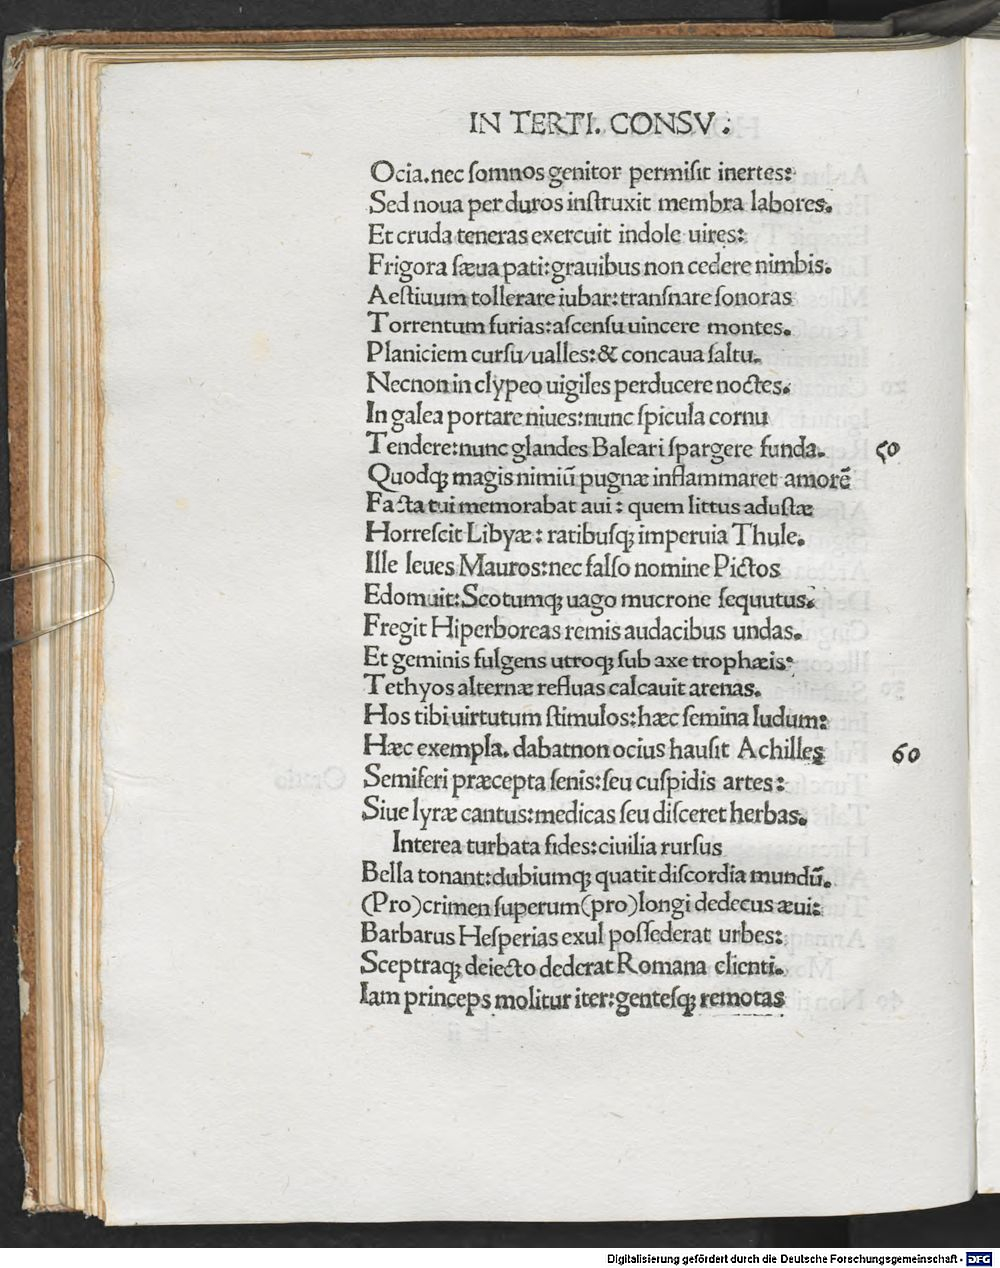 IN TERTI. CONSV.:
Ocia.nec ſomnos genitor permiſit inertes:
Sed noua per duros inſtruxit membra labores.
Et cruda teneras exercuit indole uires:
Frigora ſæua pati:grauibus non cedere nimbis.
Aeſtiuum tollerare iubar:tranſnare ſonoras
Torrentum furias:aſcenſu uincere montes.
Planiciem curſu/ualles:& concaua ſaltu.
Necnon in clypeo uigiles perducere noctes.
In galea portare niues:nunc ſpicula cornu
Tendere:nunc glandes Baleari ſpargere funda. 50
Quodqꝫ magis nimiū pugnæ inflammaret amorē
Facta tui memorabat aui: quem littus aduſtæ
Horreſcit Libyæ: ratibuſqꝫ imperuia Thule.
Ille leues Mauros:nec falſo nomine Pictos
Edomuit:Scotumqꝫ uago mucrone ſequutus.
Fregit Hiperboreas remis audacibus undas.
Et geminis fulgens utroqꝫ ſub axe trophæis:
Tethyos alternæ refluas calcauit arenas.
Hos tibi uirtutum ſtimulos:hæc ſemina ludum:
Hæc exempla. dabatnon ocius hauſit Achilles 60
Semiferi præcepta ſenis:ſeu cuſpidis artes:
Siue lyræ cantus:medicas ſeu diſceret herbas.
Interea turbata fides:ciuilia rurſus
Bella tonant:dubiumqꝫ quatit diſcordia mundū.
(Pro)crimen ſuperum(pro)longi dedecus æui:
Barbarus Heſperias exul poſſederat urbes:
Sceptraqꝫ deiecto dederat Romana clienti.
Iam princeps molitur iter:genteſqꝫ remotas
Digitalisierung gefördert durch die Deutsche Forschungsgemeinschaft - DFG